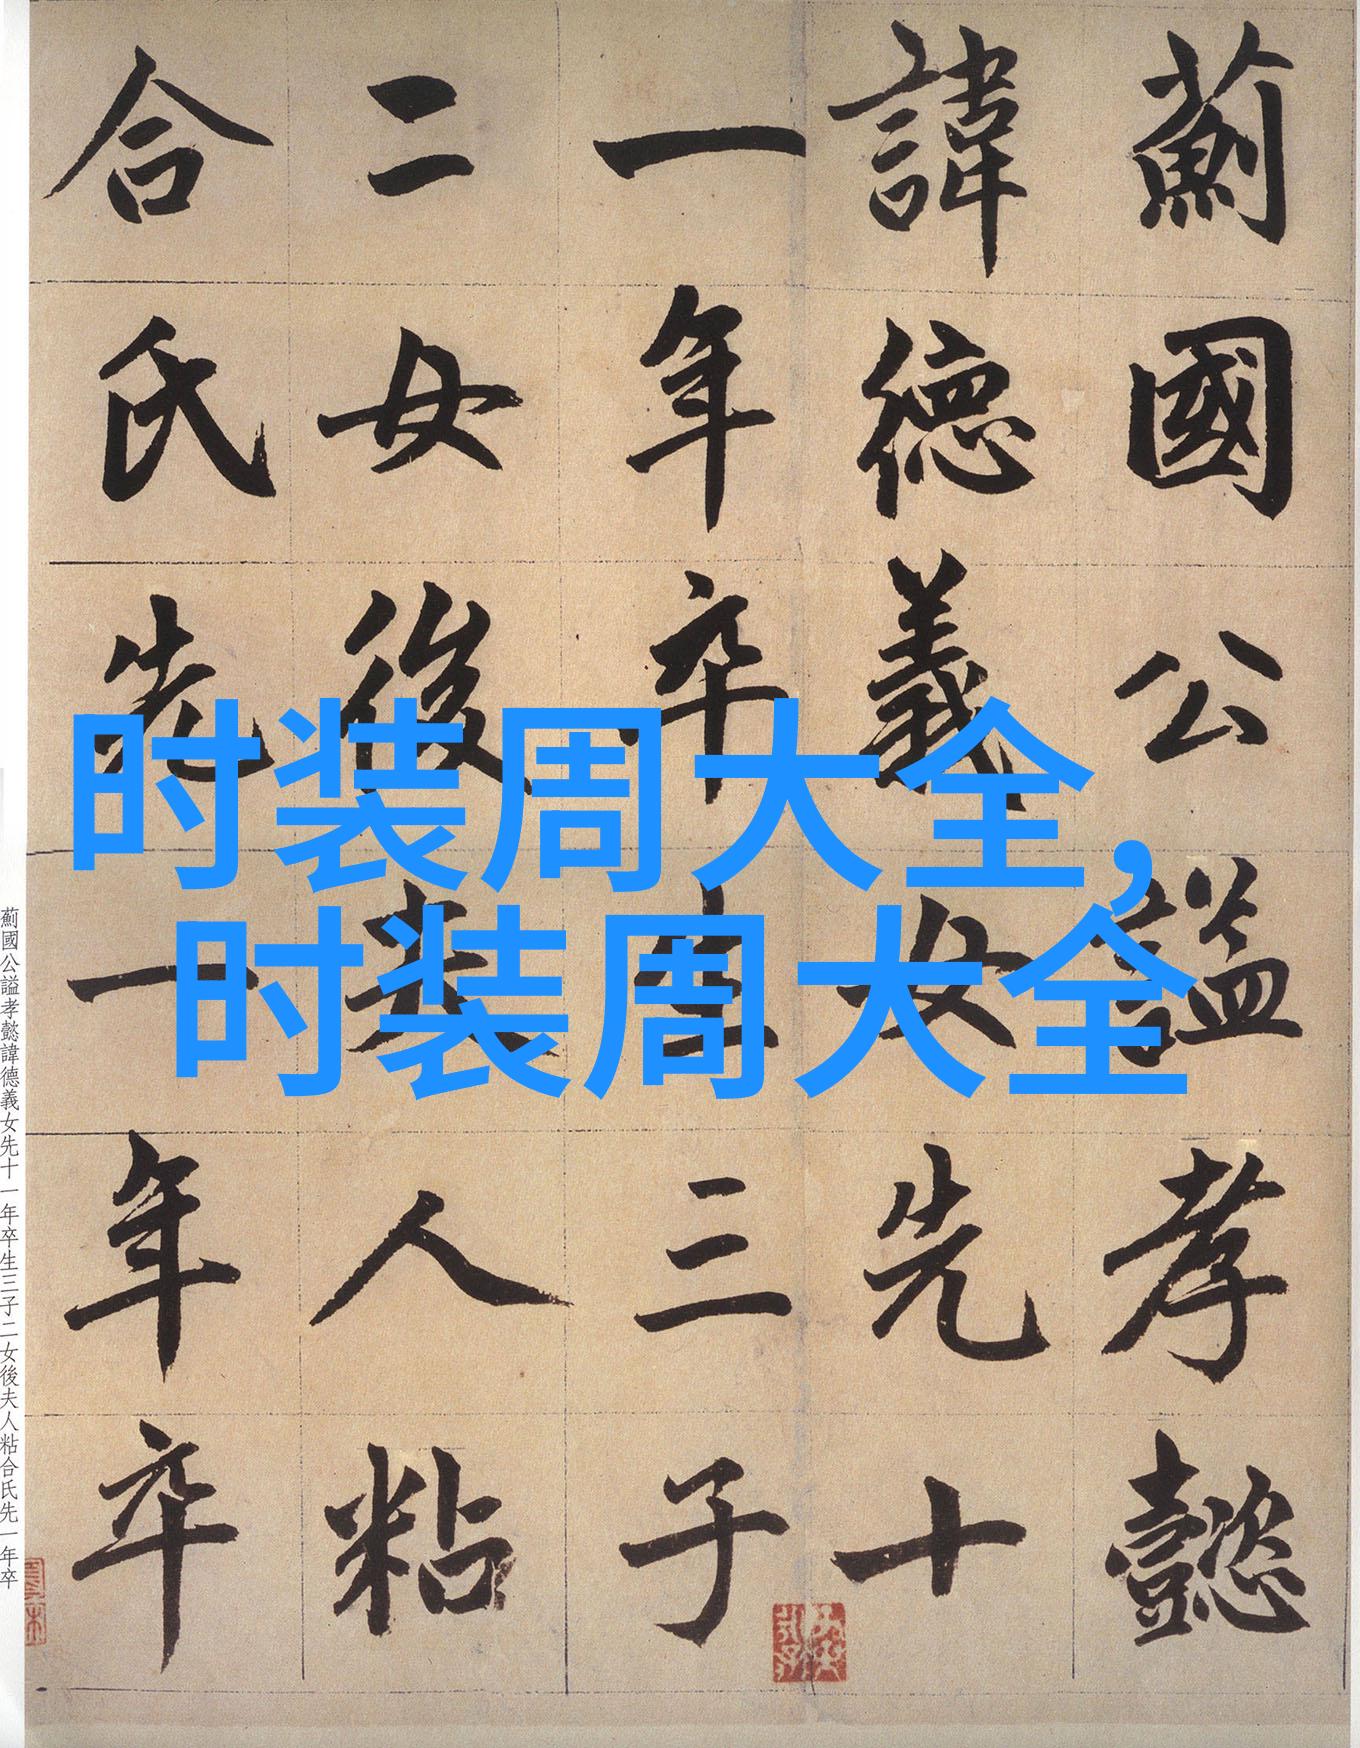 薊國公謚孝懿
諱德義女先十
一年卒生三子
二女後夫人粘
合氏先一年卒
时装周大全,
时装周大全
薊國公謚孝懿諱德義女先十一年卒生三子二女後夫人粘合氏先一年卒